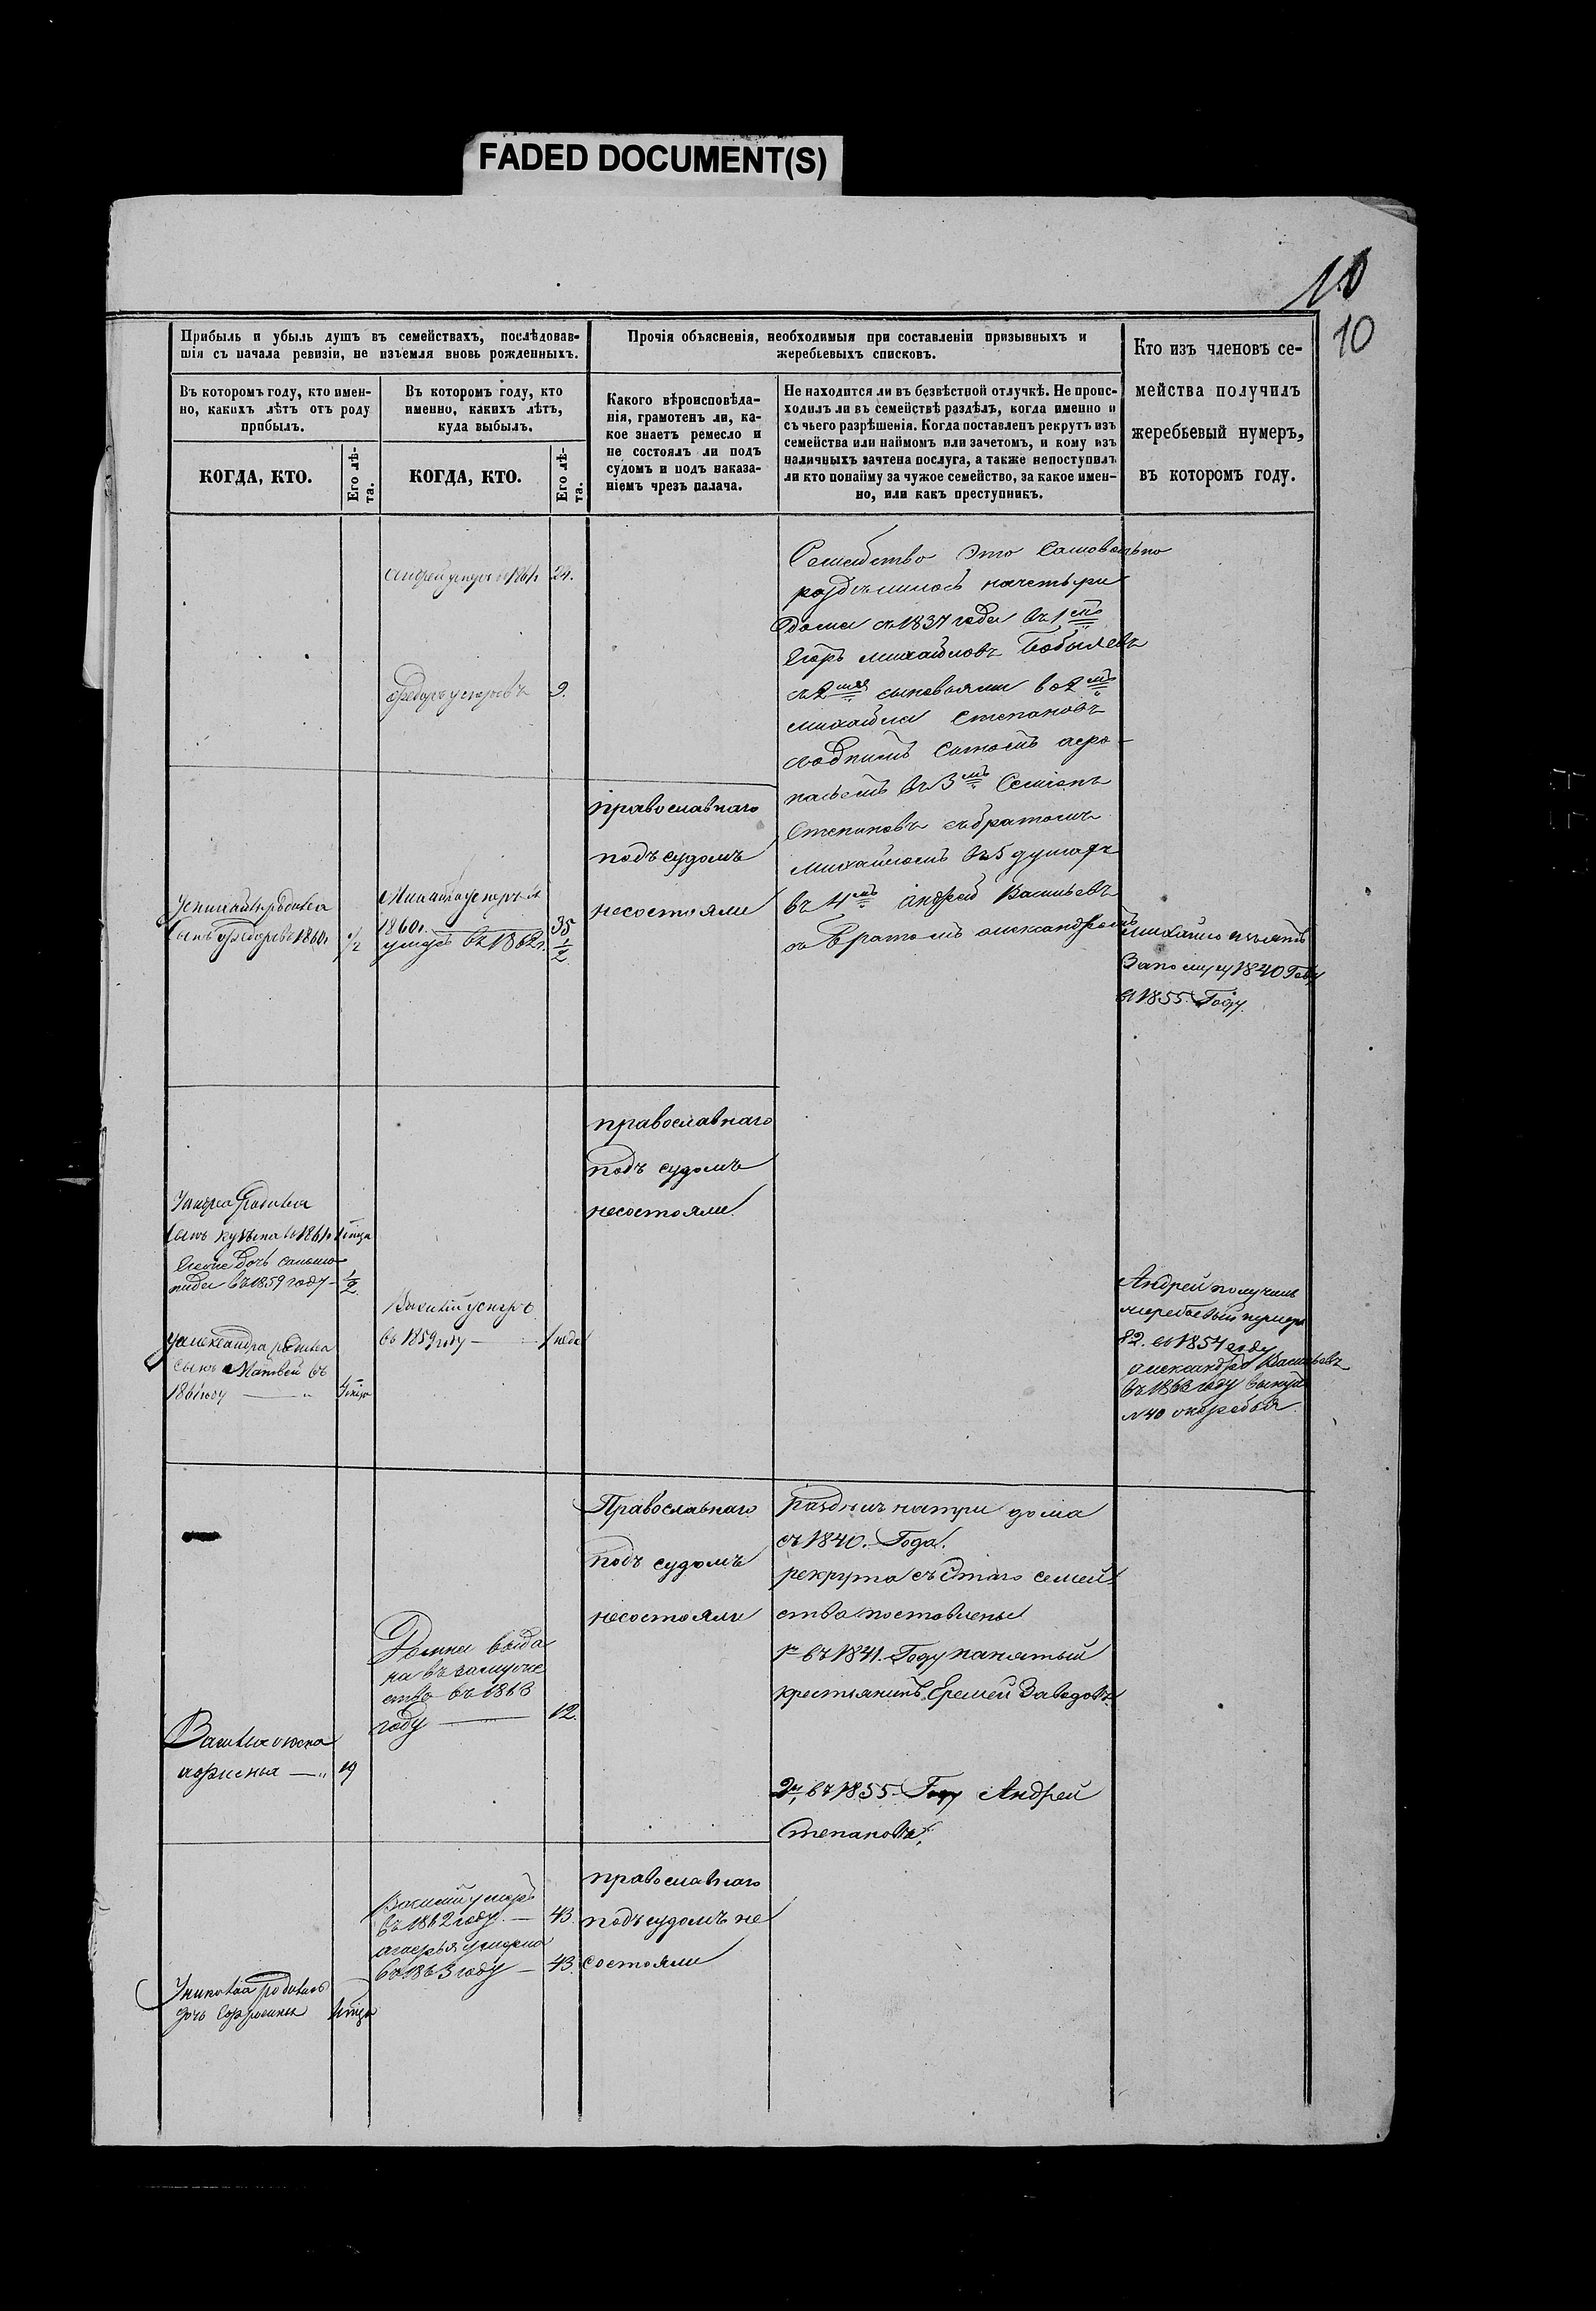 FADED DOCUMENT(S)
10
10
Прибыль и убыль душъ въ семействахъ, послѣдовав-
шія съ начала ревизіи, не изъемля вновь рожденныхъ.
Прочія объясненія, необходимыя при составленіи призывныхъ и
жеребьевыхъ списковъ.
Кто изъ членовъ се-
мейства получилъ
жеребьевый нумеръ,
въ которомъ году.
Въ которомъ году, кто имен-
но, какихъ лѣтъ отъ роду
прибылъ.
Въ которомъ году, кто
именно, какихъ лѣтъ,
куда выбылъ.
Какого вѣроисповѣда-
нія, грамотенъ ли, ка-
кое знаетъ ремесло и
не состоялъ ли подъ
судомъ и подъ наказа-
ніемъ чрезъ палача.
Не находится ли въ безвѣстной отлучкѣ. Не проис-
ходилъ ли въ семействѣ раздѣлъ, когда именно и
съ чьего разрѣшенія. Когда поставленъ рекрутъ изъ
семейства или наймомъ или зачетомъ, и кому изъ
наличныхъ зачтена послуга, а также непоступилъ
ли кто понайму за чужое семейство, за какое имен-
но, или какъ преступникъ.
КОГДА, КТО.
Его лѣ-
та.
КОГДА, КТО.
Его лѣ-
та.
Андрей 24.
Федоръ умеръ въ 9.
Семейство Это Самовольно
раздѣлилось начетыри
дома съ 1837 года въ 1мъ
Егоръ михайловъ Бобылевъ
съ 2мя сыновьями во 2мъ
михайла Степановъ
въ 3мъ Семенъ
Степановъ съ братомъ
михайломъ въ 5 душахъ
въ 4мъ Андрей Васильевъ
съ Братомъ александромъ
православнаго
подъ судомъ
несостояли
сынъ Федоръ в 1860г 1/2
1860г.
умеръ въ 1862г. 35 1/2
михайло
1840 Году
в 1855. Году.
православнаго
подъ судомъ
несостояли
У андрея родился
сынъ кузьма в 1861г
дочь
въ 1859 году - 1/2
Василий умеръ
въ 1859 году — 1 года
У александра родился
сынъ Матвей въ
1861 году — "
Андрей получилъ
жеребьевый нумеръ
82. в 1854 году
александръ Васильевъ
въ 1863 году вынулъ
№ 40 жеребья
Православнаго
подъ судомъ
несостояли
на три дома
съ 1840. Года.
рекрута съ Етаго семей-
ства поставлены
1й въ 1841. Году нанятый
крестьянинъ Еремей Заводовъ
2й въ 1855 Году Андрей
Степановъ.
Домна выда
на въ замуже
ство въ 1863
году — 12.
Василья жена
афимья — " 19
православнаго
подъ судомъ не
состояли
Василий умеръ
въ 1862 году. — 43.
агафья умерла
въ 1863 году — 43.
У николая родилась
дочь Ефросинья